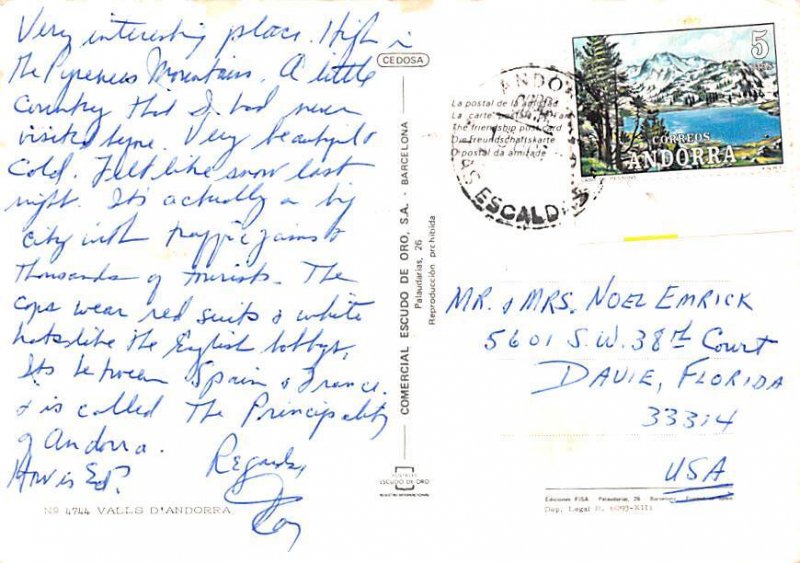 Very interesting place. High in
the Pyrenees Mountains. A little
country that I had never
visited before. Very beautiful &
cold. Felt like snow last
night. It's actually a big
city with traffic jams &
thousands of tourists. The
cops wear red suits & white
hats like the English bobbys.
Its between Spain & France.
& is called the Principality
of Andorra.
How is Ed?
Regards,
Nº 4744 VALLS D'ANDORRA
CEDOSA
COMERCIAL ESCUDO DE ORO, S.A. - BARCELONA
Palaudarias, 26
Reproducción prohibida
POSTALES
ESCUDO DE ORO
REGISTRO INTERNACIONAL
La postal de la amistad
La carte postale
The friendship post card
Die Freundschaftskarte
O postal da amizade
ANDOR
ESCALD
5
CORREOS
ANDORRA
MR. & MRS. NOEL EMRICK
5601 S.W. 38th Court
DAVIE, FLORIDA
33314
USA
Ediciones FISA Palaudarias, 26 Barcelona
Dep. Legal B. 6093-XIII